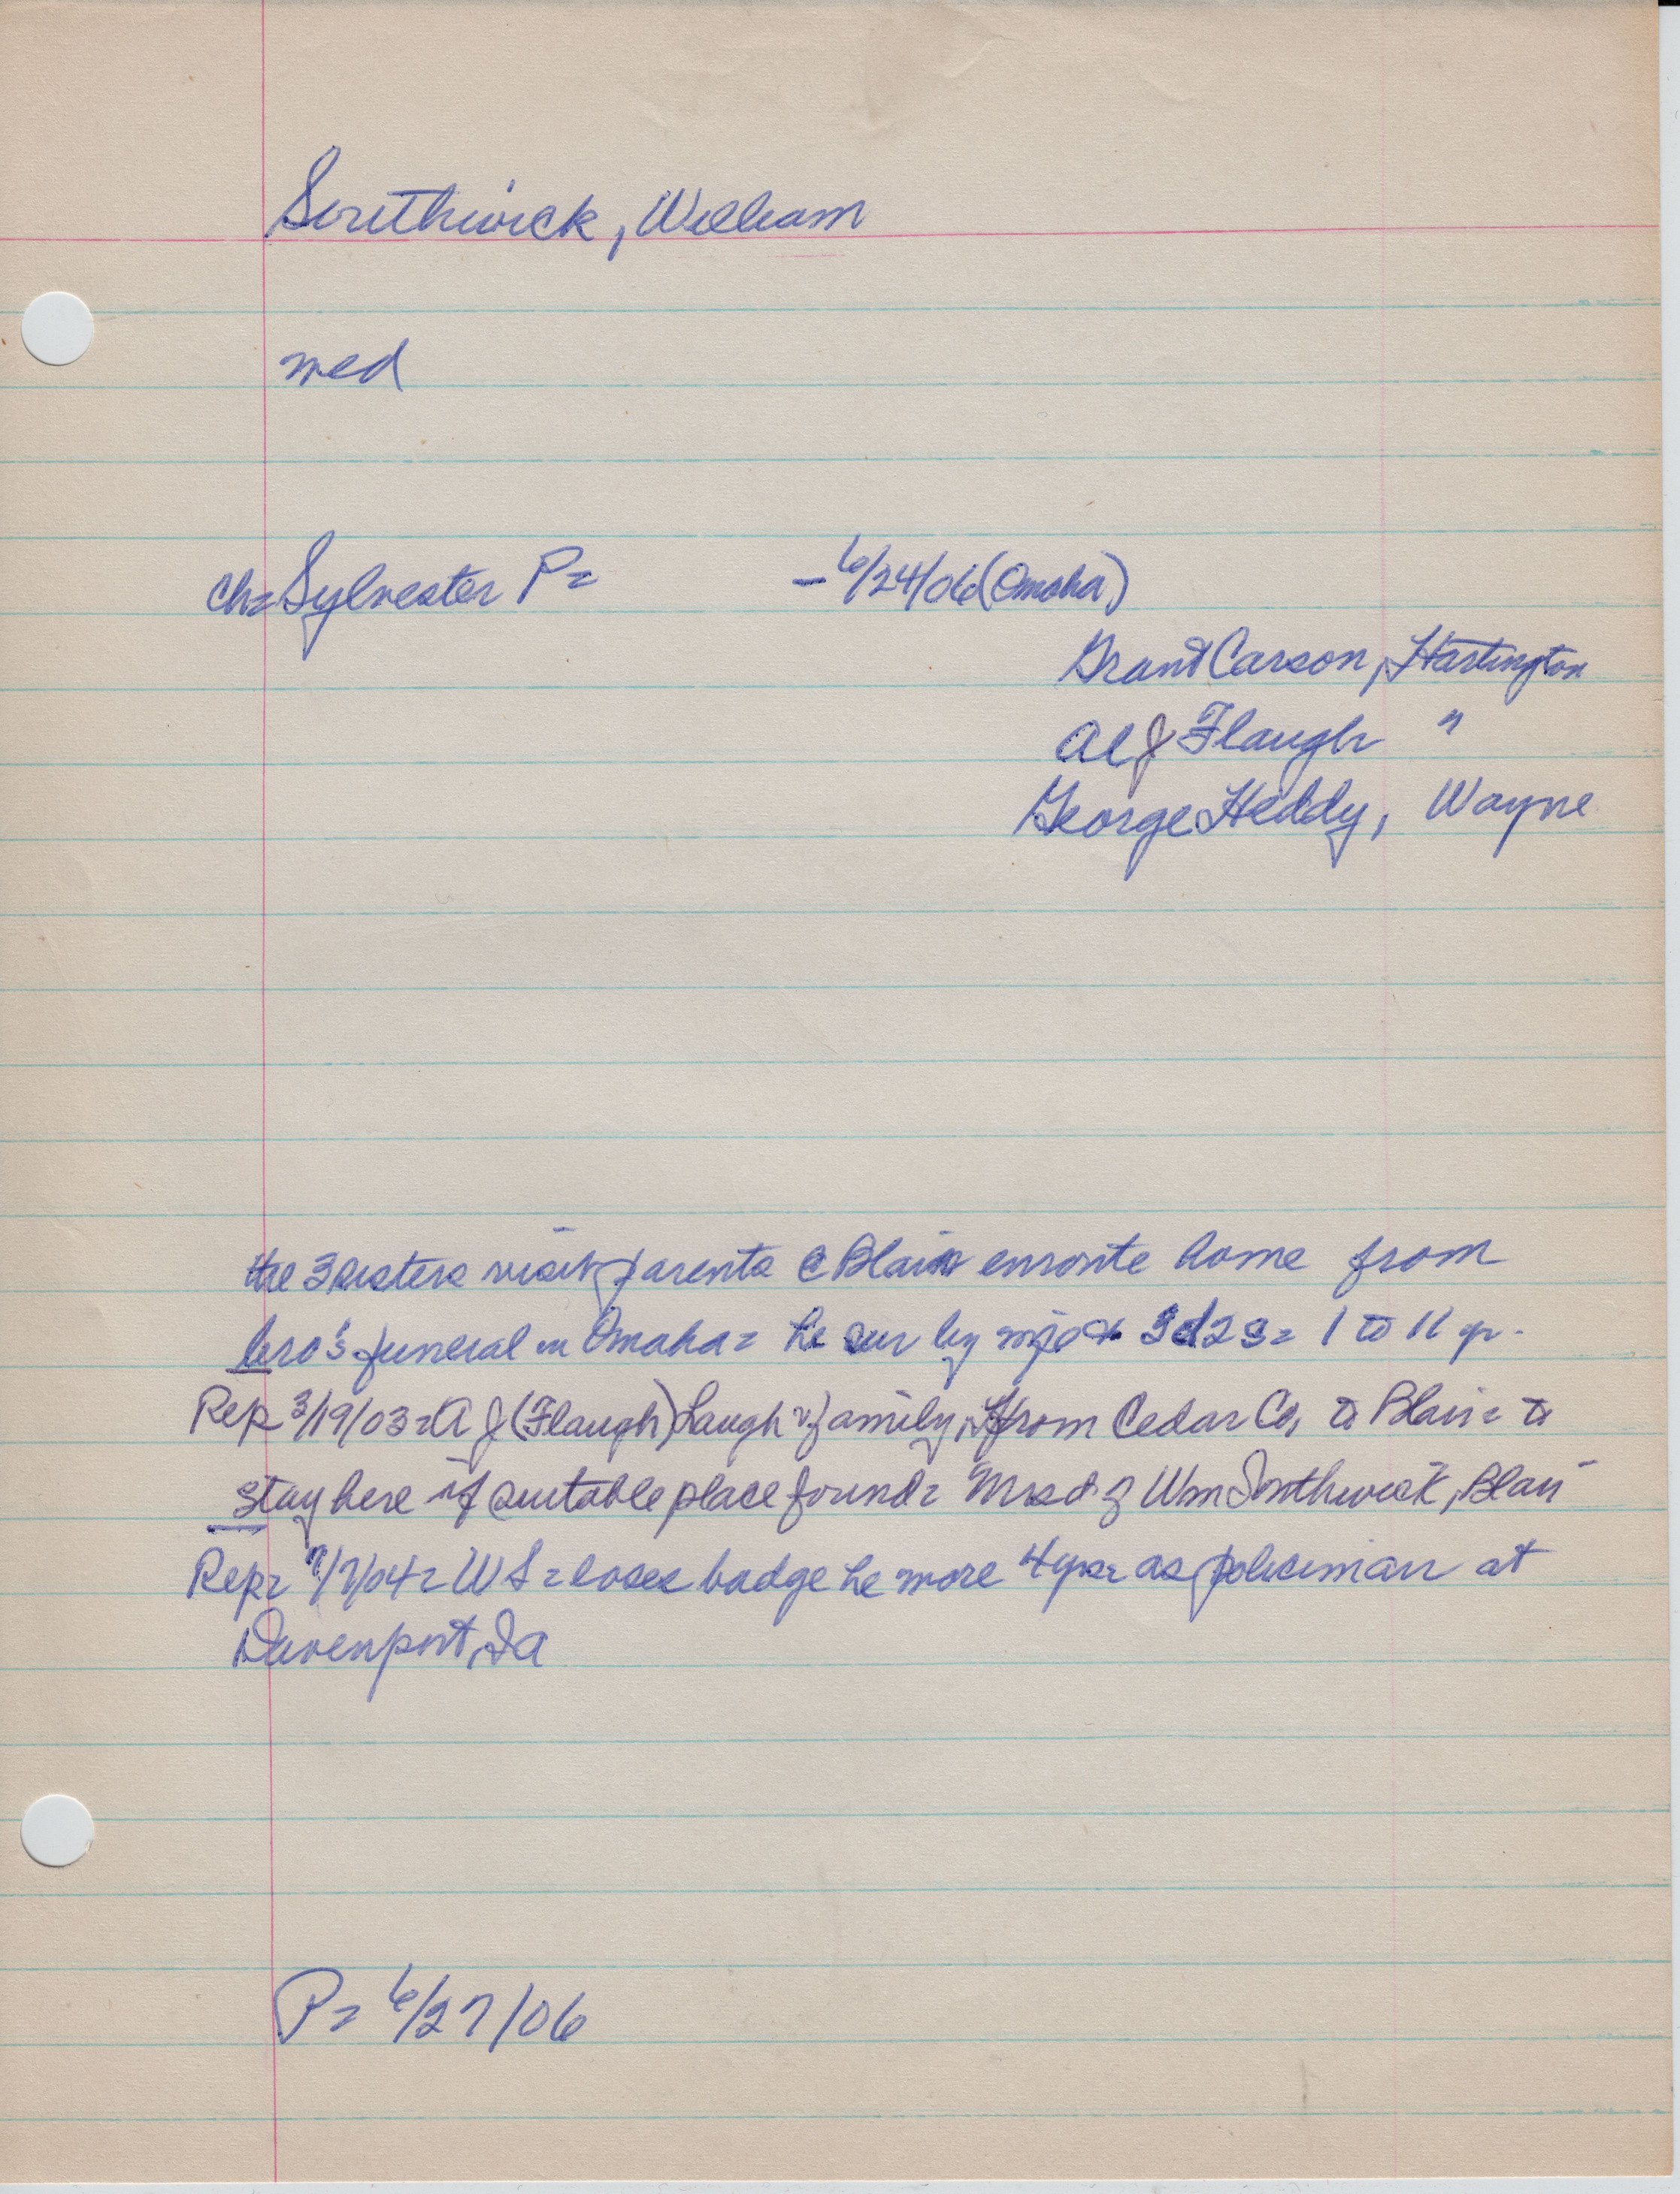 Southwick, William
med
ch= Sylvester P= -6/24/06 (Omaha)
Grant Carson, Hartington
Al J Flaugh "
George Heddy, Wayne
the 3 sisters visit parents @ Blair enroute home from
bro's funeral in Omaha= he sur by wife & 3d 2s= 1 to 11 yr.
Rep 3/19/03= A J (Flaugh) Laugh & family, from Cedar Co, to Blair= to
stay here if suitable place found= Mrs d of Wm Southwick, Blair
Rep= 7/7/04= WS= loses badge he wore 4 yrs= as policeman at
Davenport, Ia
P= 6/27/06